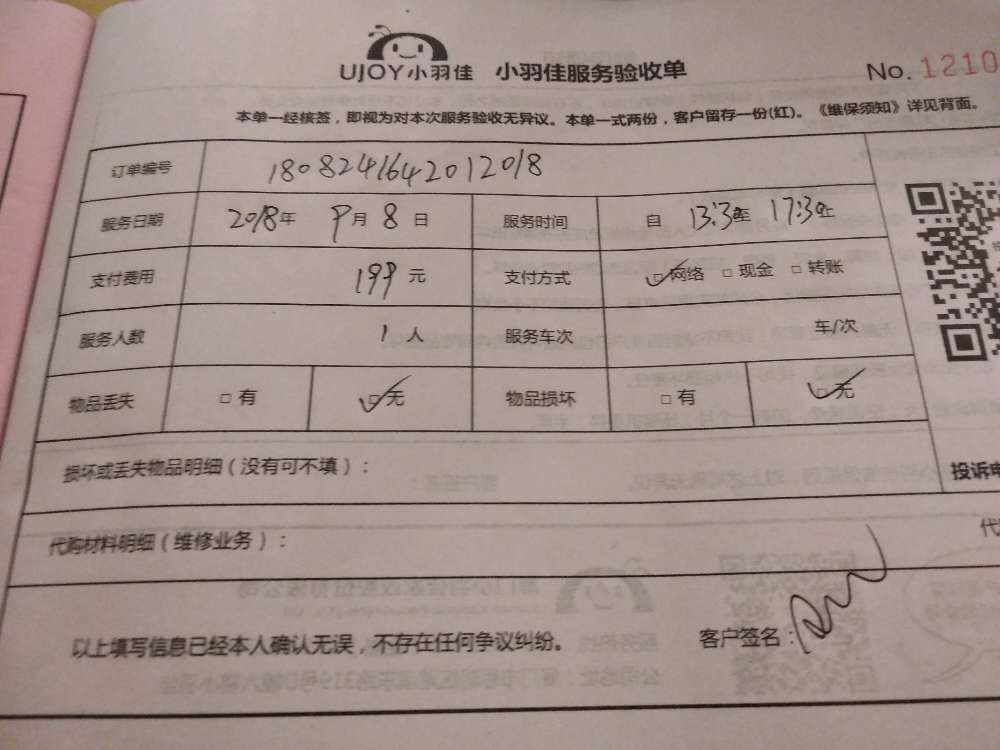 UJOY小羽佳 小羽佳服务验收单 No. 1210
本单一经核签，即视为对本次服务验收无异议。本单一式两份，客户留存一份(红)。《维保须知》详见背面。
订单编号 1808241642012018
服务日期 2018年 9月 8日 服务时间 自 13:30至 17:30止
支付费用 199 元 支付方式 ☑网络 □现金 □转账
服务人数 1 人 服务车次 车/次
物品丢失 □有 ☑无 物品损坏 □有 ☑无
损坏或丢失物品明细（没有可不填）：
投诉电
代购材料明细（维修业务）：
代
以上填写信息已经本人确认无误，不存在任何争议纠纷。 客户签名：